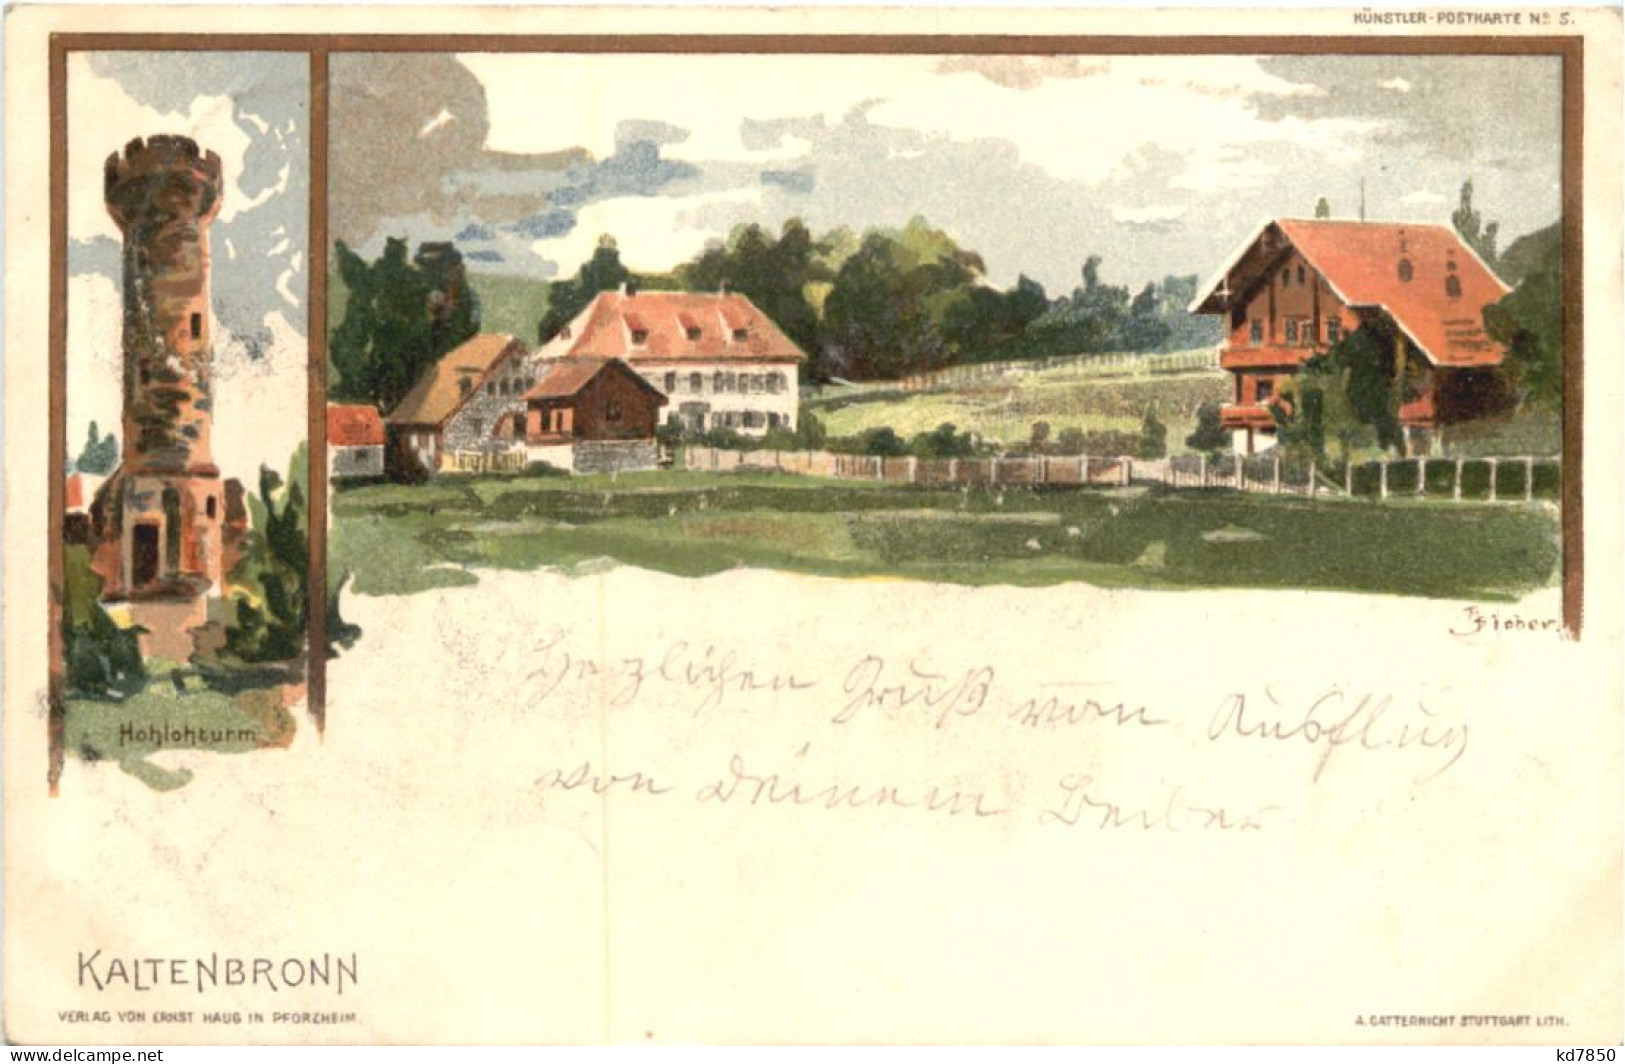 KÜNSTLER-POSTKARTE No 5.
Hohlohturm
Herzlichen Gruß vom Ausflug
von Deinem
KALTENBRONN
VERLAG VON ERNST HAUG IN PFORZHEIM.
A. GATTERNICHT STUTTGART LITH.
delcampe.net
kd7850